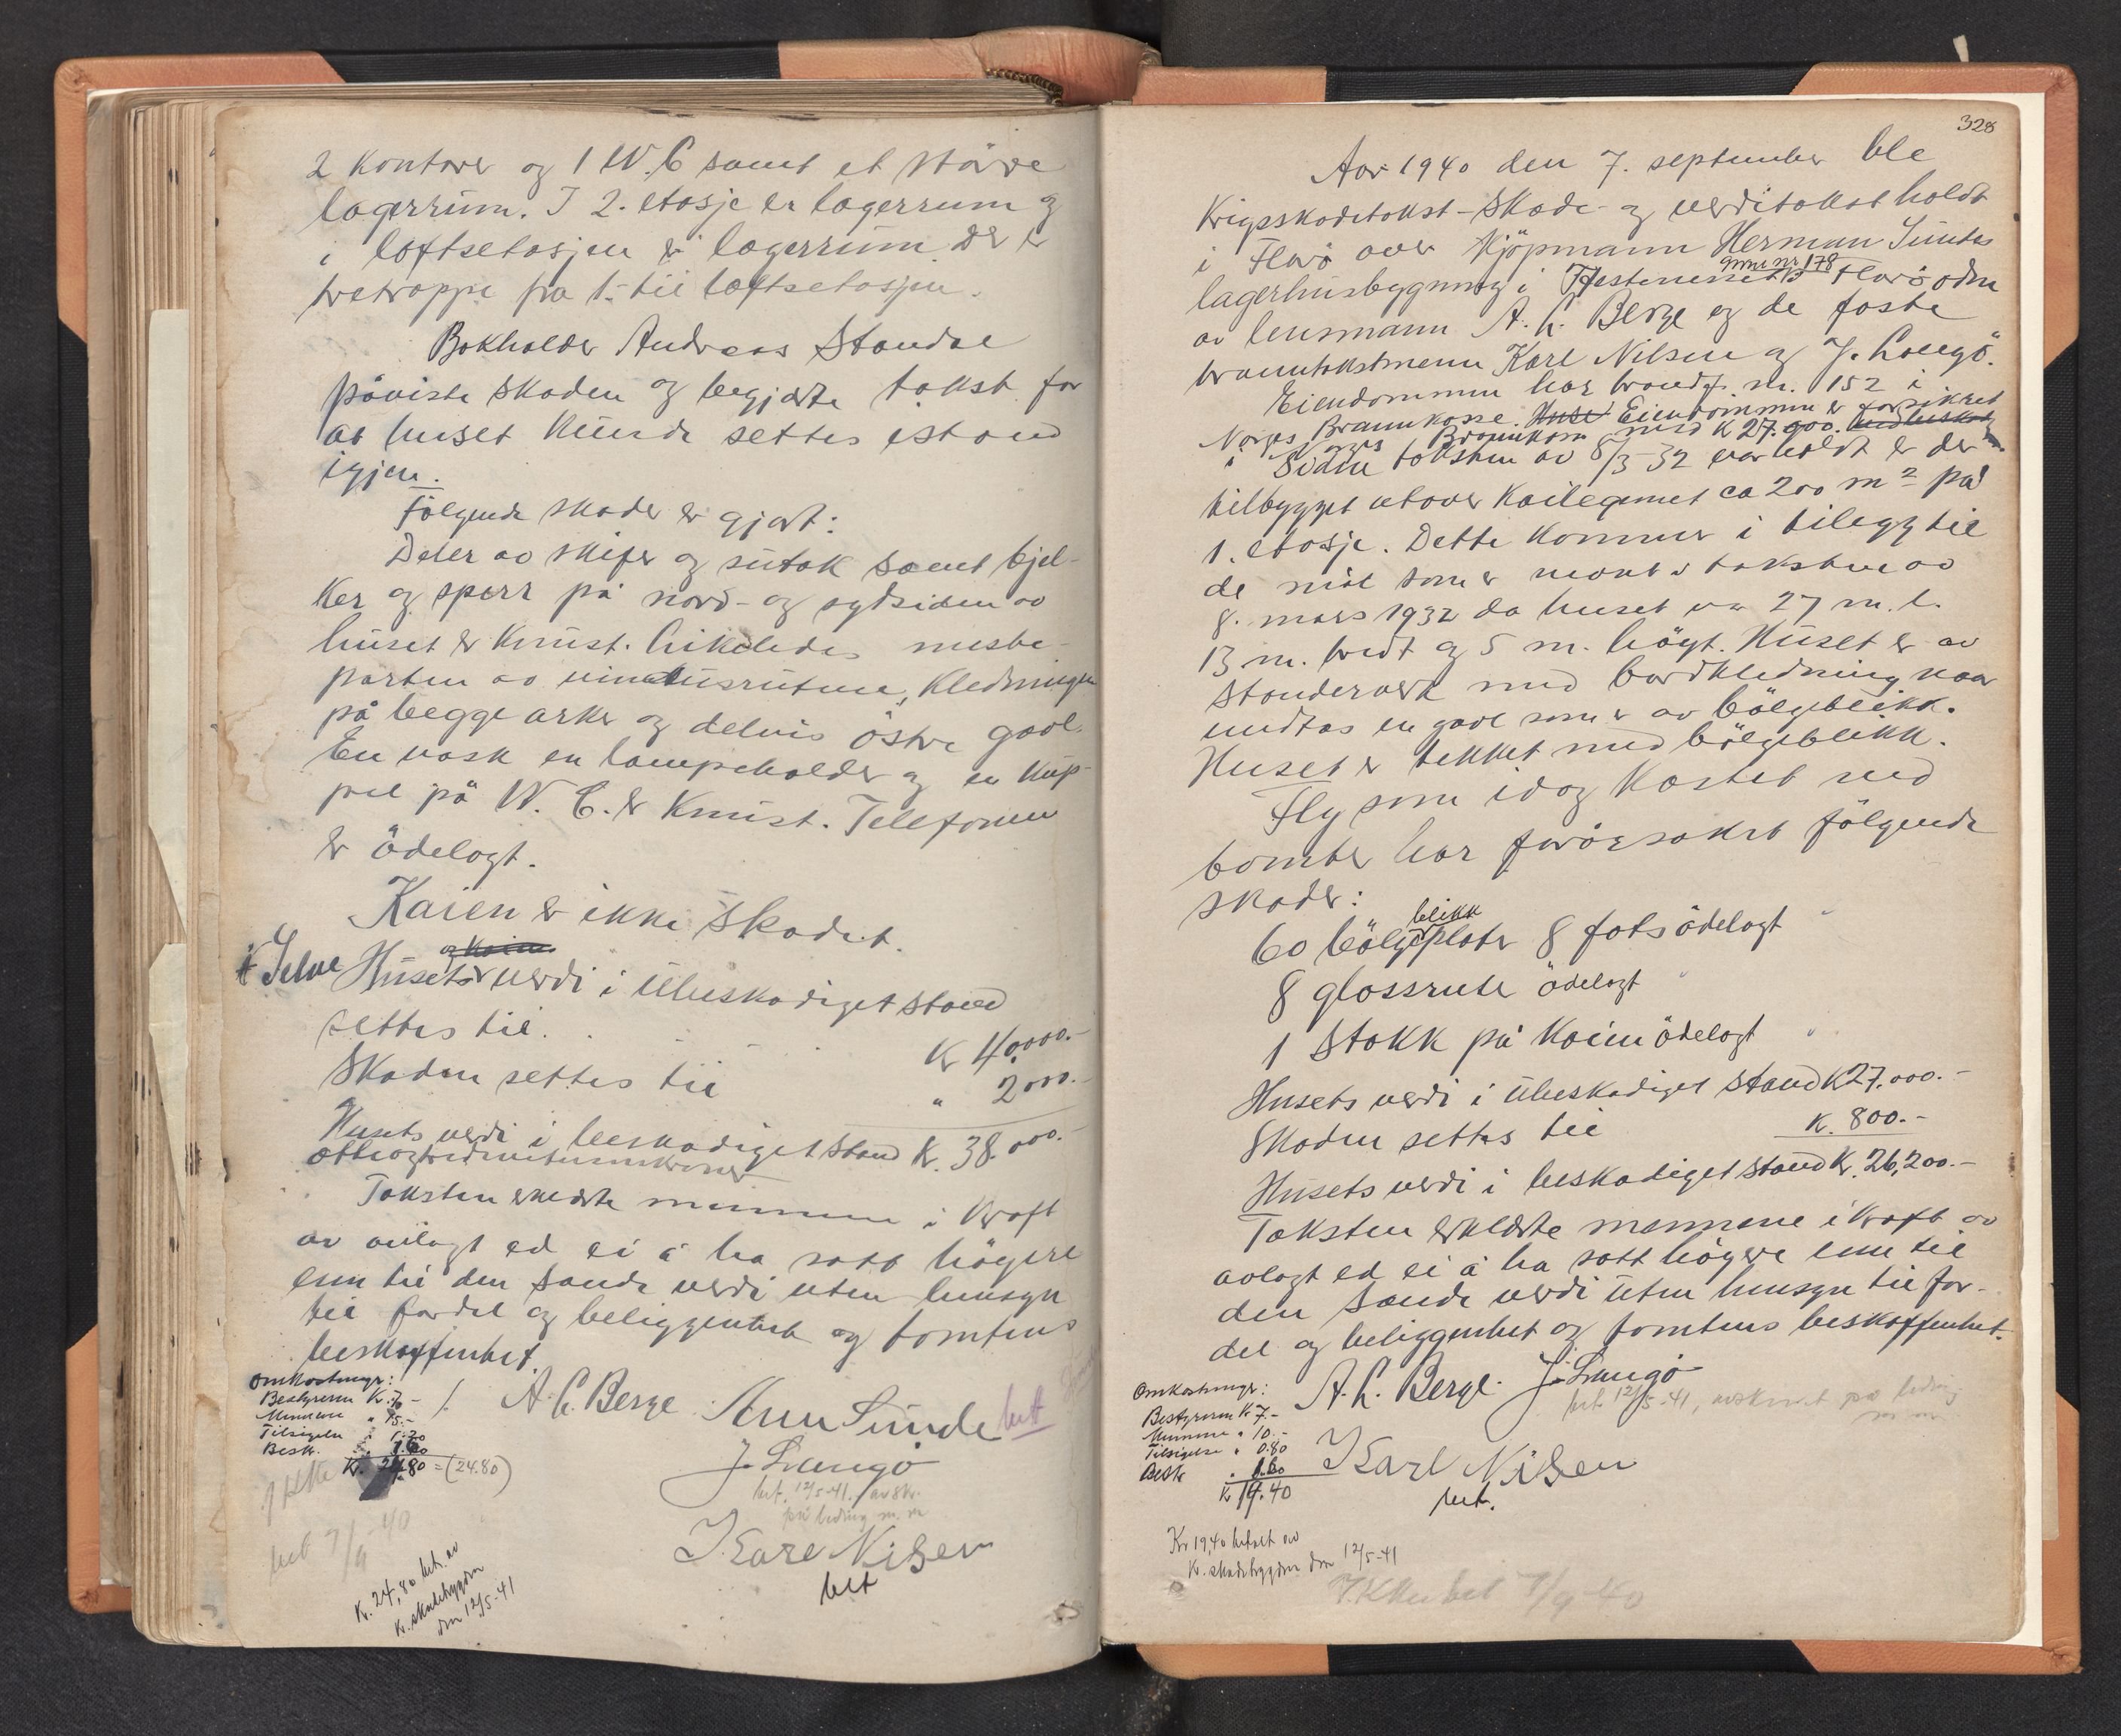 2 kontorer og 1 W.C samt et större
lagerrüm. I 2. etasje er lagerrum og
i loftsetasjen er lagerrüm. Der er
tretrappe fra 1. til loftsetasjen.
Bokholder Andreas Standal
påviste skaden og begjærte takst for
at huset kunde settes istand
igjen.
Følgende skader er gjort:
Deler av skifer og sutak samt bjel-
ker og sperr på nord- og sydsiden av
huset er knust. Likeledes meste-
parten av vindusrutene, kledningen
på begge arker og delvis östre gavl.
En vask en lampeholder og en kup-
pel på W.C. er knust. Telefonen
er ödelagt.
Kaien er ikke skadet.
og kaiens
Selve Husets verdi i übeskadiget stand
settes til. . . . Kr 40.000.-
Skaden settes til " 2000.-
Husets verdi i beskadiget stand Kr. 38000.-
åtteogtredivetusenkroner
Taksten erklærte mennene i kraft
av avlagt ed ei å ha satt högere
enn til den sande verdi uten hensyn
til fordel og beliggenhet og tomtens
beskaffenhet.
Omkostninger:
Bestyreren Kr. 7.-
Mennene " 15.-
Tilsigelse " 1.20
Besk. " 1.60
Kr. 24.80 = (24.80)
A. L. Berge Arne Sunde bet
J. Langö
bet. 12/5-41. avskr.
på leding m. m
Karl Nilsen
bet
bet 9/9-40
Kr. 24,80 bet. av
Kr.skadetrygden
den 12/5-41
328
Aar 1940 den 7. september ble
krigsskadetakst - skade- og verditakst holdt
i Florö over kjöpmann Herman Sundes
gnr nr 178
lagerhusbygning i Hestenesset Florö odm
av lensmann A. L. Berge og de faste
branntakstmenn Karl Nilsen og J. Langö.
Eiendommen har brandf. nr. 152 i
Norges Brannkasse. Huset Eiendommen er forsikret
i Norges Brannkasse med K 27.000.
Siden taksten av 8/3-32 var holdt er der
tilbygget utover kailegemet ca 200 m² på
1. etasje. Dette kommer i tillegg til
de mål som er nevnt i taksten av
8. mars 1932 da huset var 27 m. l.
13 m. bredt og 5 m. högt. Huset er av
standerverk med bordkledning naar
undtas en gavl som er av bölgeblikk.
Huset er tekket med bölgeblikk.
Fly som idag kastet ned
bomber har forårsaket fölgende
skader:
60 bölgeblikkplater 8 fots ödelagt
8 glassruter ödelagt "
1 stokk på kaien ödelagt "
Husets verdi i übeskadiget stand K 27.000.-
Skaden settes til K. 800.-
Husets verdi i beskadiget stand Kr. 26,200.-
Taksten erklærte mennene i kraft av
avlagt ed ei å ha satt högere enn til
den sande verdi üten hensyn til for-
del og beliggenhet og tomtens beskaffenhet.
Omkostninger:
Bestyreren K 7.-
Mennene " 10.-
Tilsigelse " 0.80
Besk " 1.60
Kr 19.40
A. L. Berge. J. Langö
bet. 12/5-41, avskrevet på leding
m m
Karl Nilsen
bet.
Kr 19,40 betalt av
Kr. skadetrygden den 12/5-41
bet 9/9-40